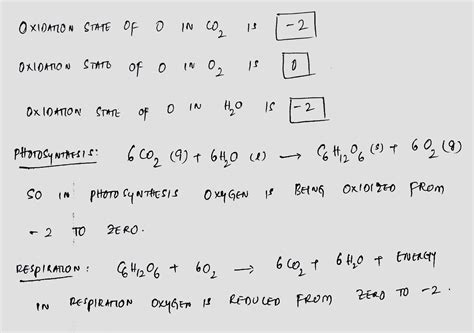 OXIDATION STATE OF O IN CO₂ IS -2
OXIDATION STATE OF O IN O₂ IS 0
OXIDATION STATE OF O IN H₂O IS -2
PHOTOSYNTHESIS: 6CO₂ (g) + 6H₂O (l) → C₆H₁₂O₆ (s) + 6O₂ (g)
SO IN PHOTOSYNTHESIS OXYGEN IS BEING OXIDIZED FROM
-2 TO ZERO.
RESPIRATION: C₆H₁₂O₆ + 6O₂ → 6CO₂ + 6H₂O + ENERGY
IN RESPIRATION OXYGEN IS REDUCED FROM ZERO TO -2.